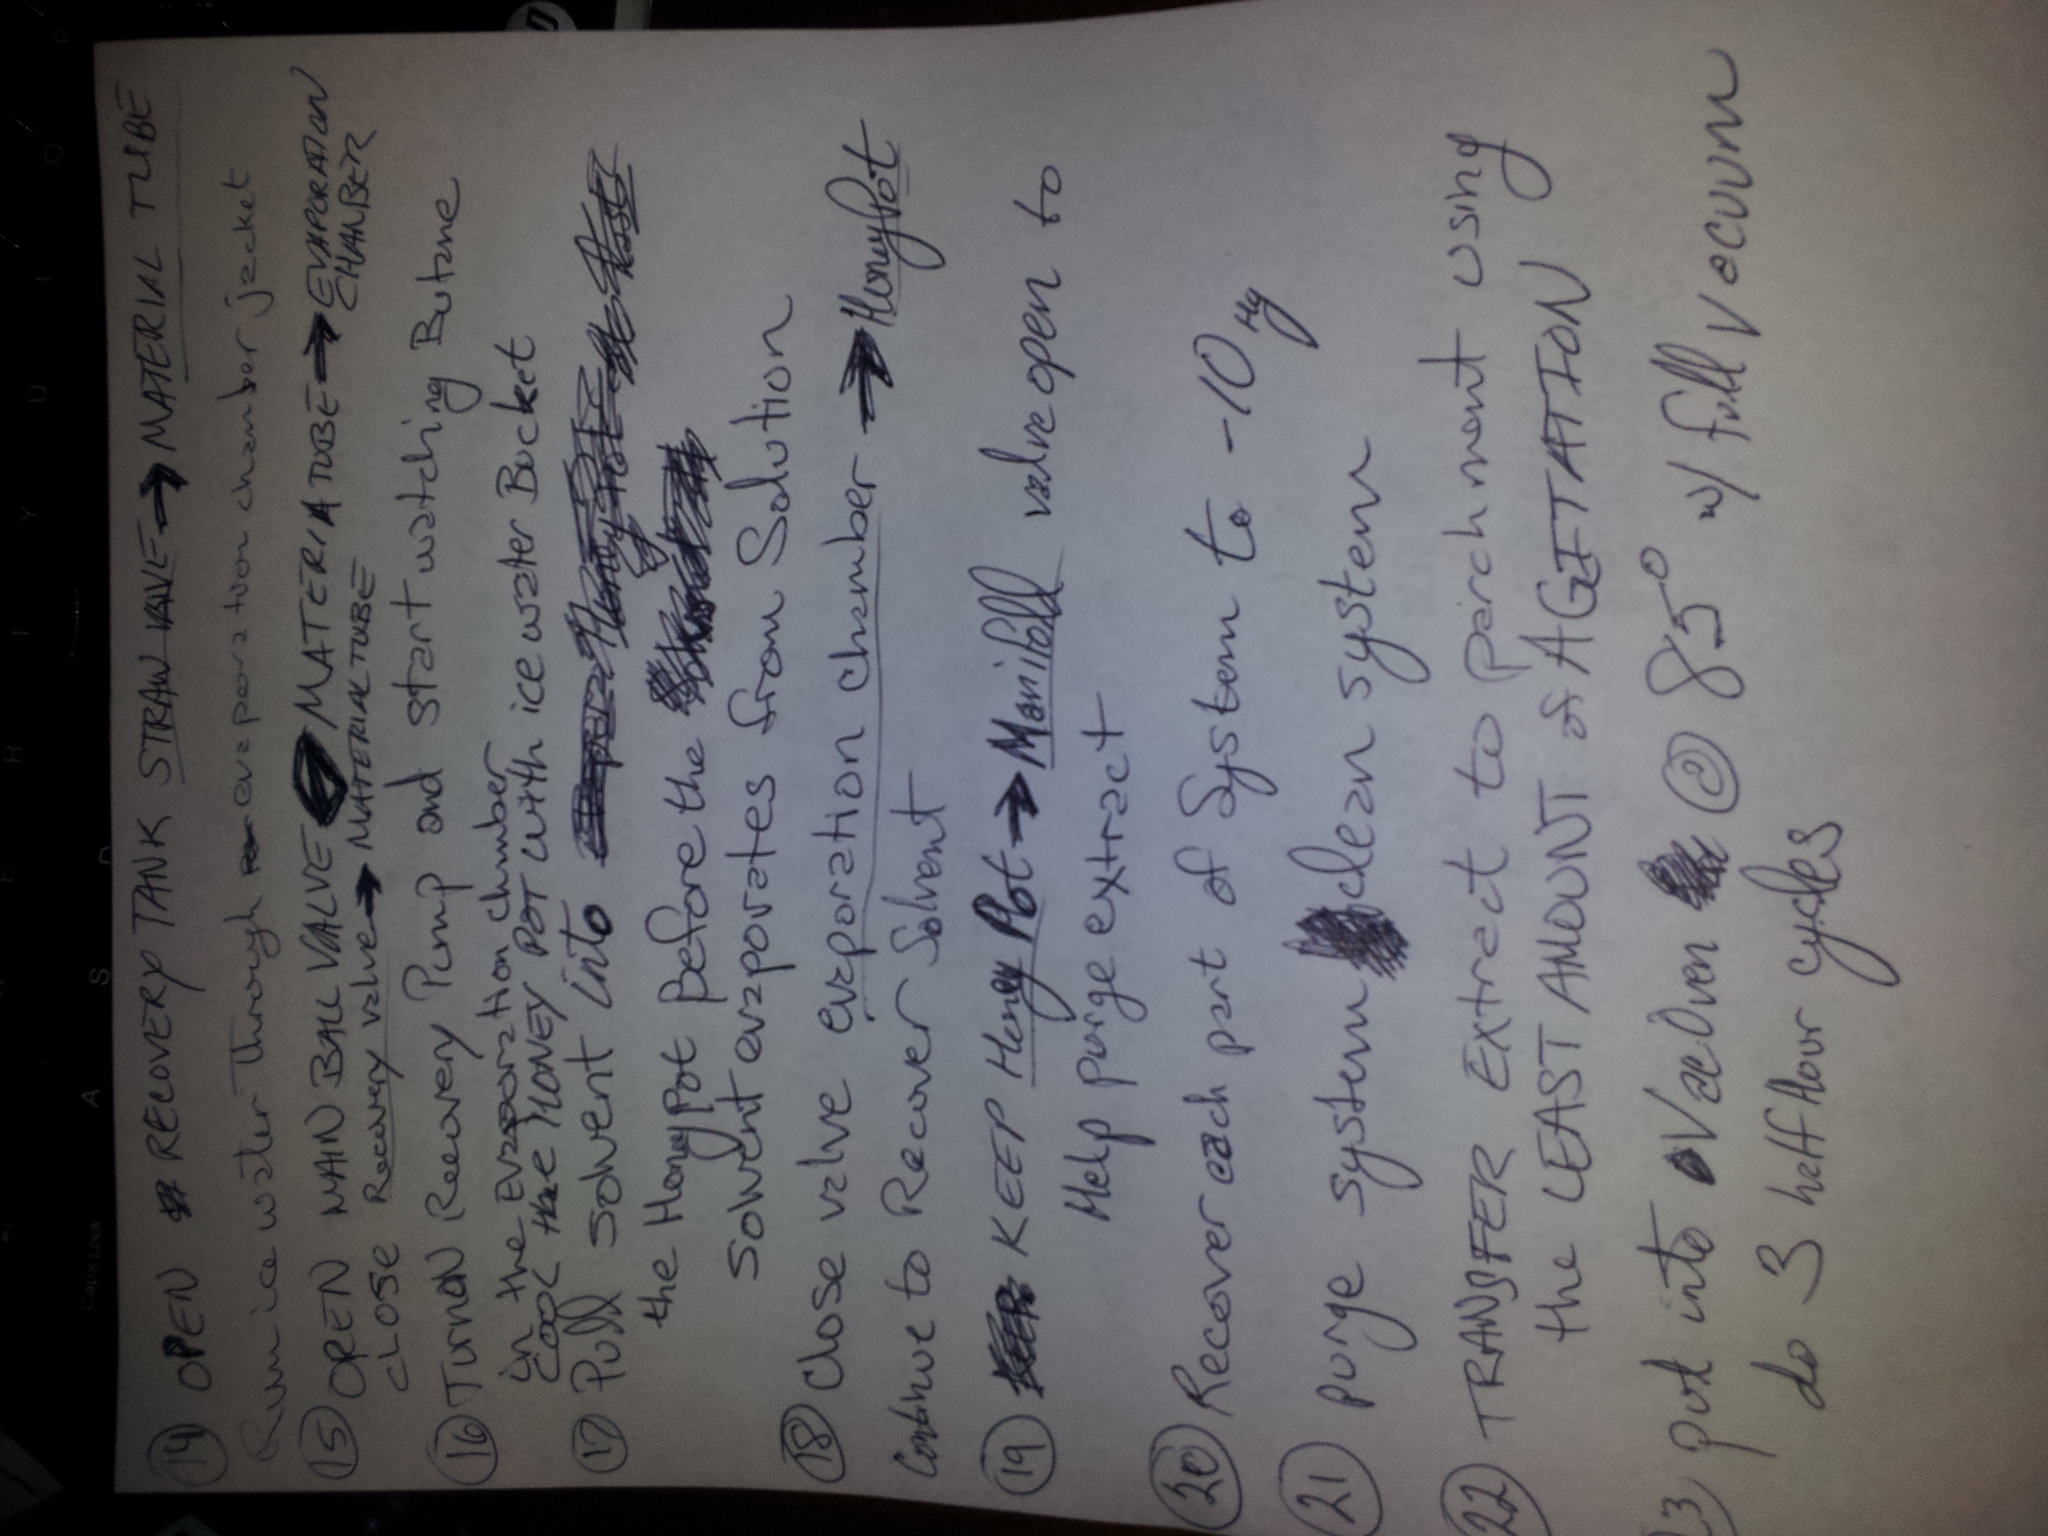 14 OPEN RECOVERY TANK STRAW VALVE → MATERIAL TUBE
Run ice water through evaporation chamber jacket
15 OPEN MAIN BALL VALVE MATERIA TUBE → EVAPORATION CHAMBER
CLOSE Recovery valve → MATERIAL TUBE
16 Turn on Recovery Pump and start watching Butane
in the Evaporation chamber
COOL the HONEY POT with ice water Bucket
17 Pull solvent into
the Honey Pot before the
Solvent evaporates from Solution
18 Close valve evaporation chamber → HoneyPot
Continue to Recover Solvent
19 KEEP Honey Pot → Manifold valve open to
Help purge extract
20 Recover each part of System to -10 Hg
21 purge system clean system
22 TRANSFER Extract to parchment using
the LEAST AMOUNT of AGITATION
3 put into Vac Oven @ 85° w/ full vacuum
do 3 half hour cycles
Caps Lock
A
S
D
E
R
T
Y
U
I
O
P